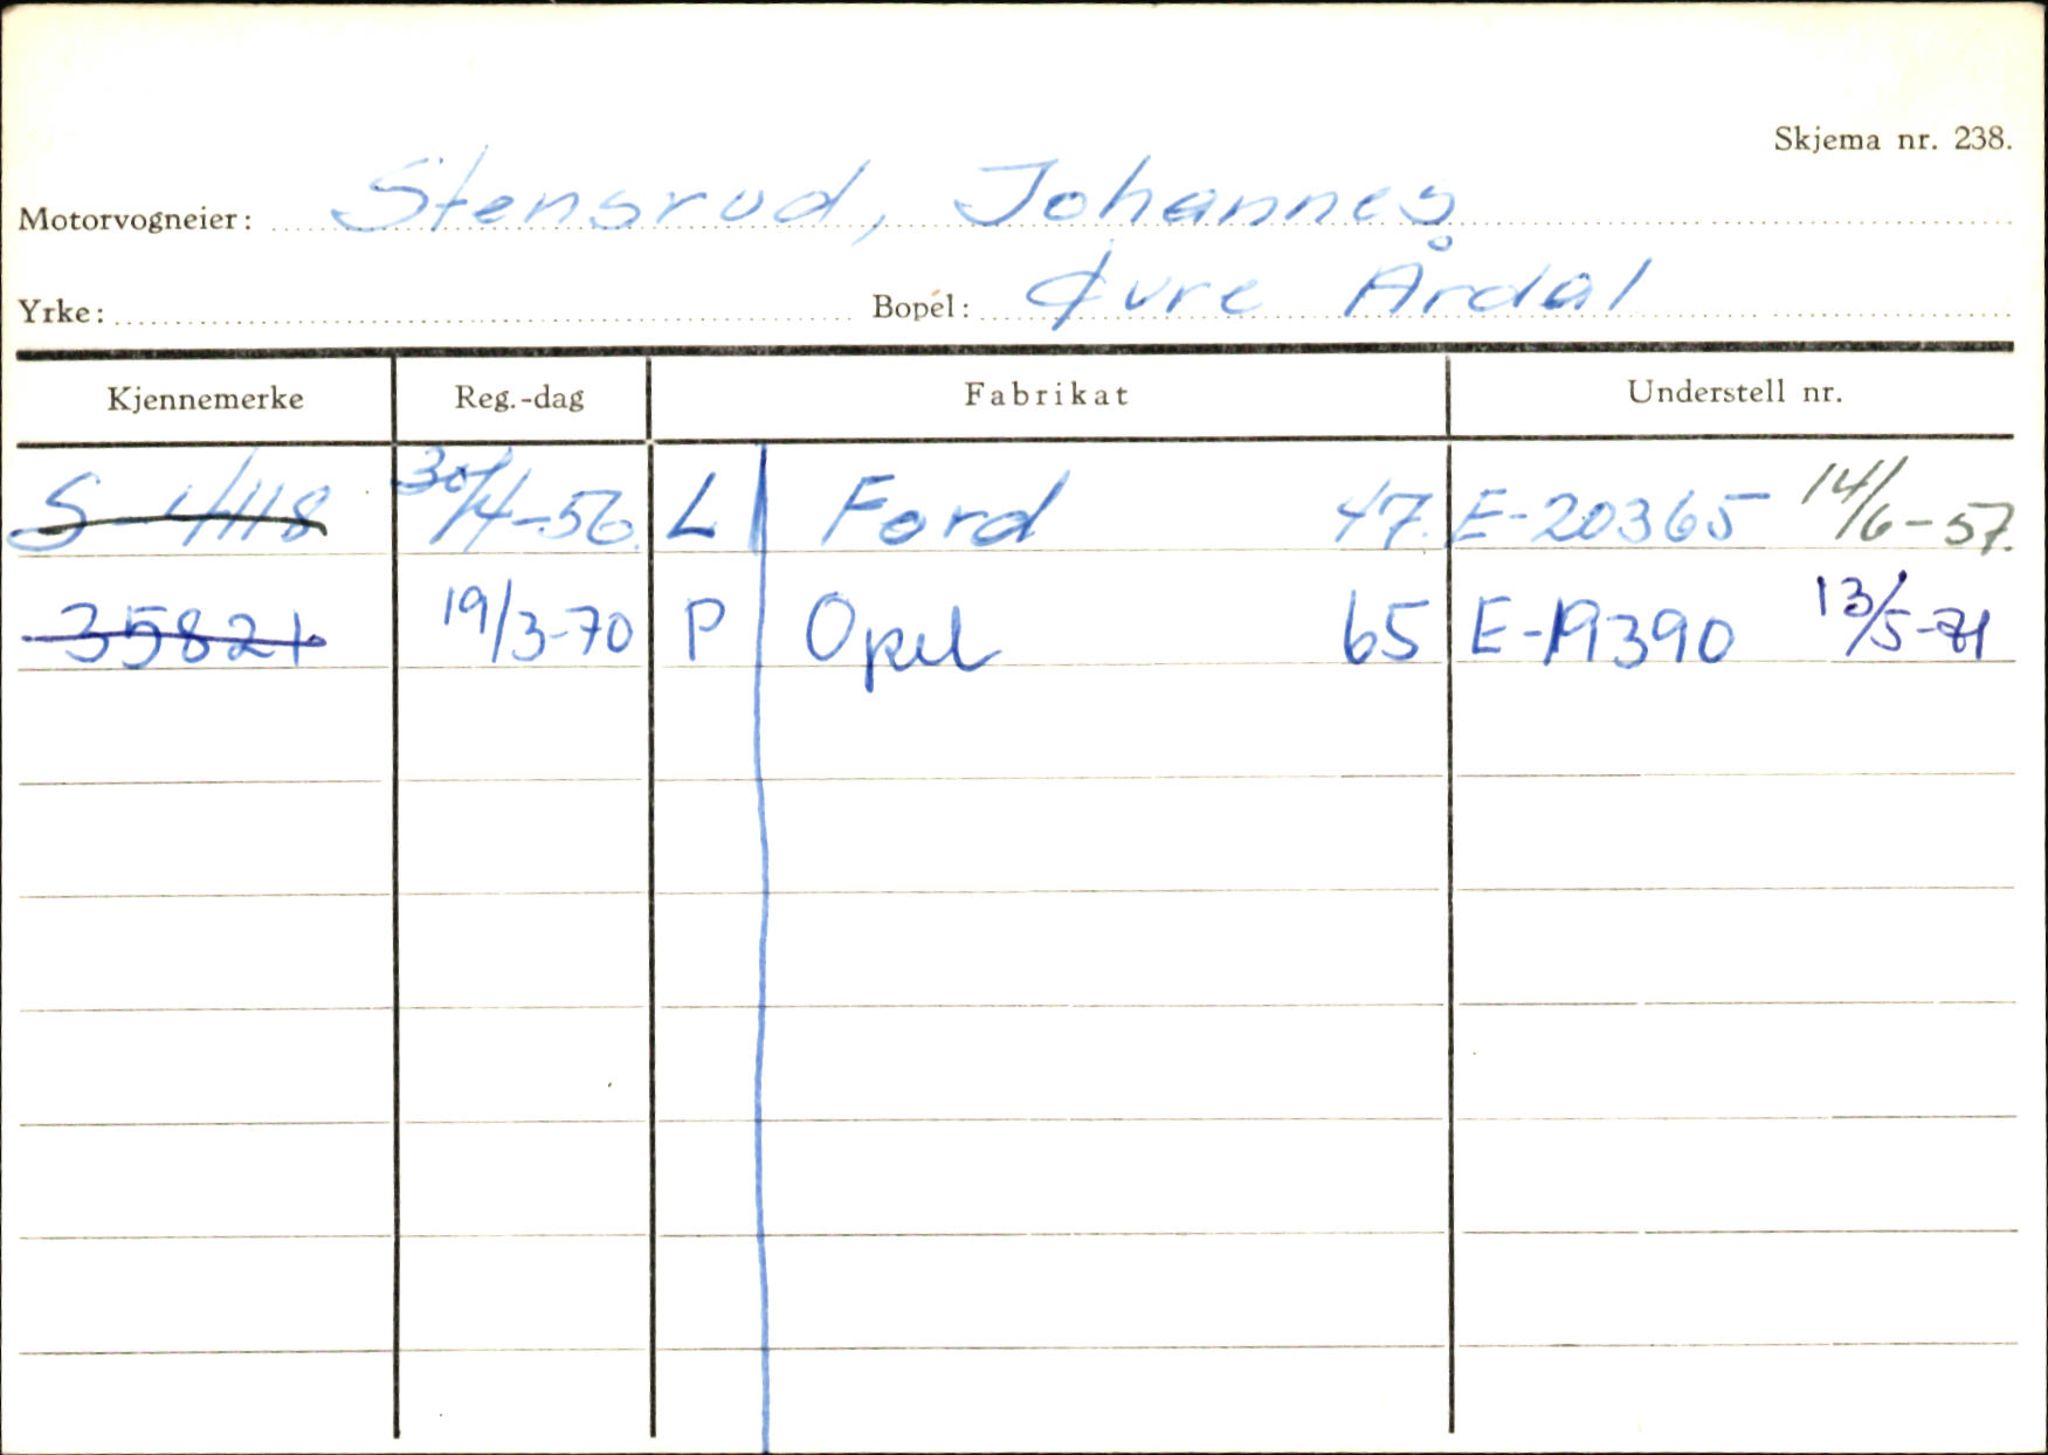 Skjema nr. 238.
Motorvogneier: Stensrud, Johannes
Yrke: Bopel: Øvre Årdal
Kjennemerke Reg.-dag Fabrikat Understell nr.
S-4118 30/4-56. L Ford 47. E-20365 14/6-57.
35821 19/3-70 P Opel 65 E-19390 13/5-71